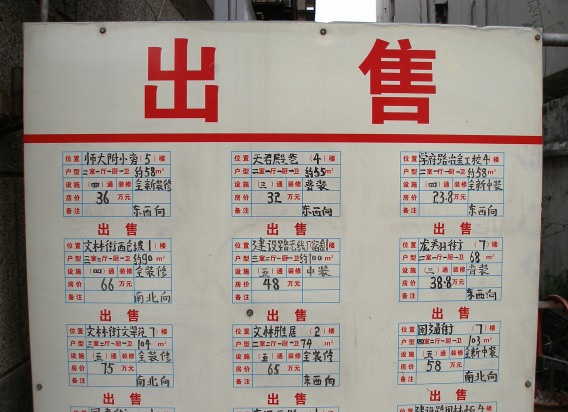 出 售
位置 师大附小旁(5)楼
户型 二室一厅一厨一卫 约58m²
设施 (四)通 装修 全新装修
房价 36 万元
备注 东西向
位置 天君殿巷(4)楼
户型 二室一厅一厨一卫 约55m²
设施 (三)通 装修 普装
房价 32 万元
备注 东西向
位置 学府路冶金工校4楼
户型 二室一厅一厨一卫 约58m²
设施 (四)通 装修 全新中装
房价 23.8 万元
备注 东西向
出 售
出 售
出 售
位置 文林街西仓坡1楼
户型 三室二厅一厨一卫 约90m²
设施 (四)通 装修 全装修
房价 66 万元
备注 南北向
位置 建设路
户型 三室二厅一厨一卫 约100m²
设施 (五)通 装修 中装
房价 48 万元
备注
位置 龙翔街(7)楼
户型 二室一厅一厨一卫 68m²
设施 (三)通 装修 普装
房价 38.8 万元
备注 东西向
出 售
出 售
出 售
位置 文林街文翠苑7楼
户型 三室二厅一厨一卫 104m²
设施 (五)通 装修 全装修
房价 75 万元
备注 南北向
位置 文林雅居(2)楼
户型 二室二厅一厨一卫 74m²
设施 (五)通 装修 全装修
房价 65 万元
备注 东西向
位置 园通街(7)楼
户型 三室二厅一厨二卫 103m²
设施 (五)通 装修 全新中装
房价 58 万元
备注 南北向
出 售
出 售
出 售